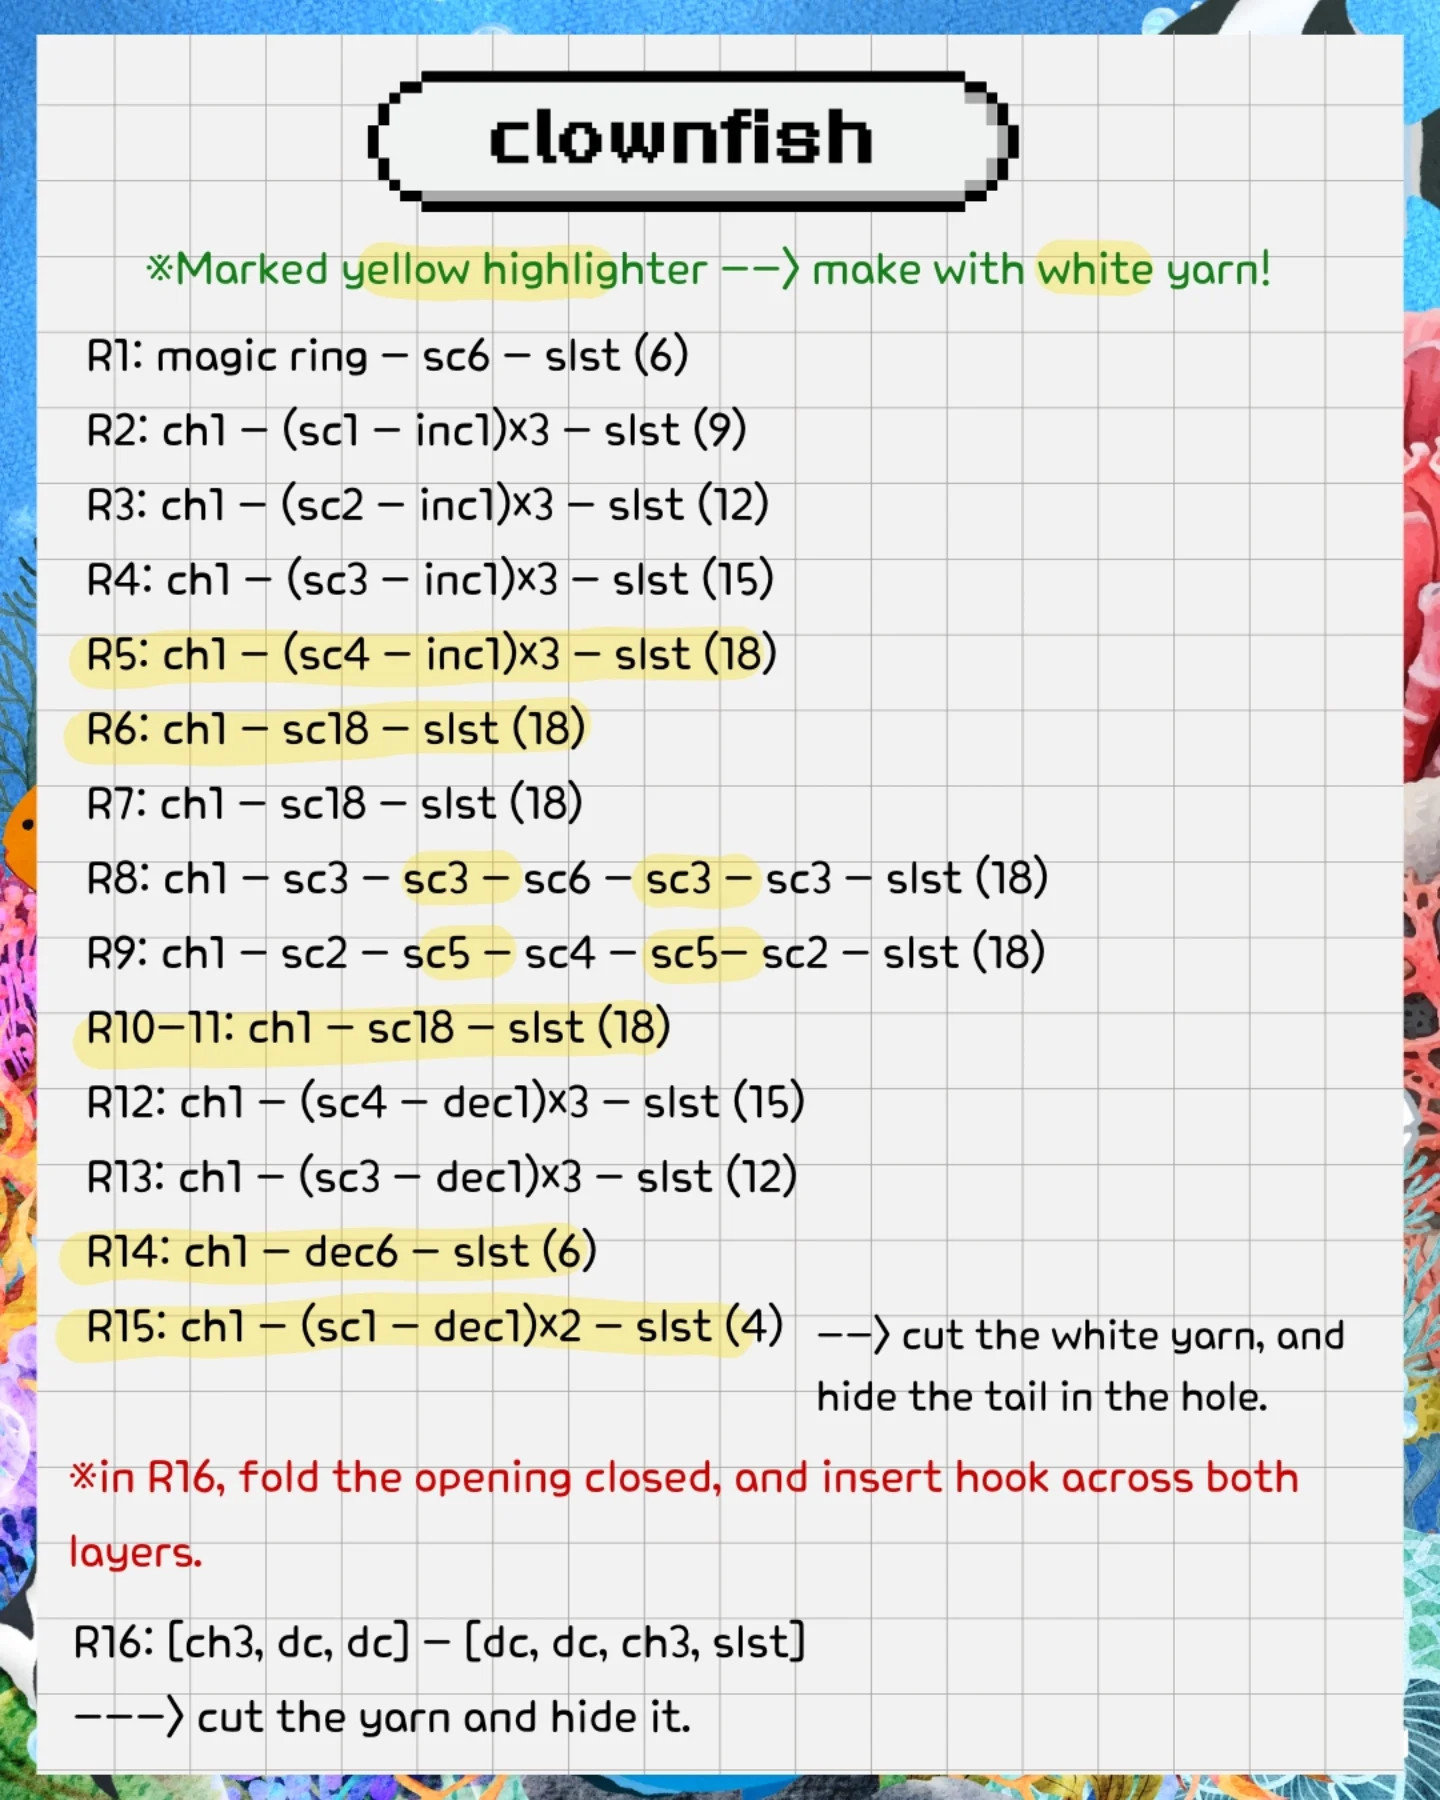 clownfish
※Marked yellow highlighter --> make with white yarn!
R1: magic ring - sc6 - slst (6)
R2: ch1 - (sc1 - inc1)×3 - slst (9)
R3: ch1 - (sc2 - inc1)×3 - slst (12)
R4: ch1 - (sc3 - inc1)×3 - slst (15)
R5: ch1 - (sc4 - inc1)×3 - slst (18)
R6: ch1 - sc18 - slst (18)
R7: ch1 - sc18 - slst (18)
R8: ch1 - sc3 - sc3 - sc6 - sc3 - sc3 - slst (18)
R9: ch1 - sc2 - sc5 - sc4 - sc5- sc2 - slst (18)
R10-11: ch1 - sc18 - slst (18)
R12: ch1 - (sc4 - dec1)×3 - slst (15)
R13: ch1 - (sc3 - dec1)×3 - slst (12)
R14: ch1 - dec6 - slst (6)
R15: ch1 - (sc1 - dec1)×2 - slst (4)
--> cut the white yarn, and
hide the tail in the hole.
※in R16, fold the opening closed, and insert hook across both
layers.
R16: [ch3, dc, dc] - [dc, dc, ch3, slst]
---> cut the yarn and hide it.